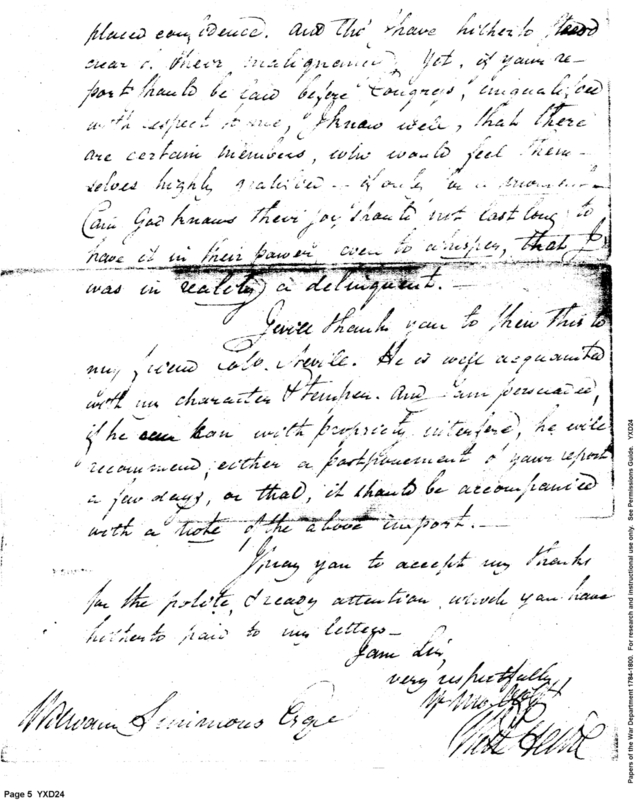 placed confidence. And tho' I have hitherto stood
clear of their malignancy, Yet, if your re-
port should be laid before Congress, unqualified
with respect to me, I know well, that there
are certain members, who would feel them-
selves highly gratified - if only for a moment -
(and God knows their joy should not last long) to
have it in their power even to whisper, that I
was in reality a delinquent. -
I will thank you to shew this to
my friend Colo. Nevill. He is well acquainted
with my character & temper. And I am persuaded,
if he can with propriety interfere, he will
recommend, either a postponement of your report
a few days, or that, it should be accompanied
with a note of the above import. -
I pray you to accept my thanks
for the polite, & ready attention which you have
hitherto paid to my letters -
I am Sir,
very respectfully
William Simmons Esqr
Papers of the War Department 1784-1800. For research and instructional use only. See Permissions Guide. YXD24
Page 5 YXD24